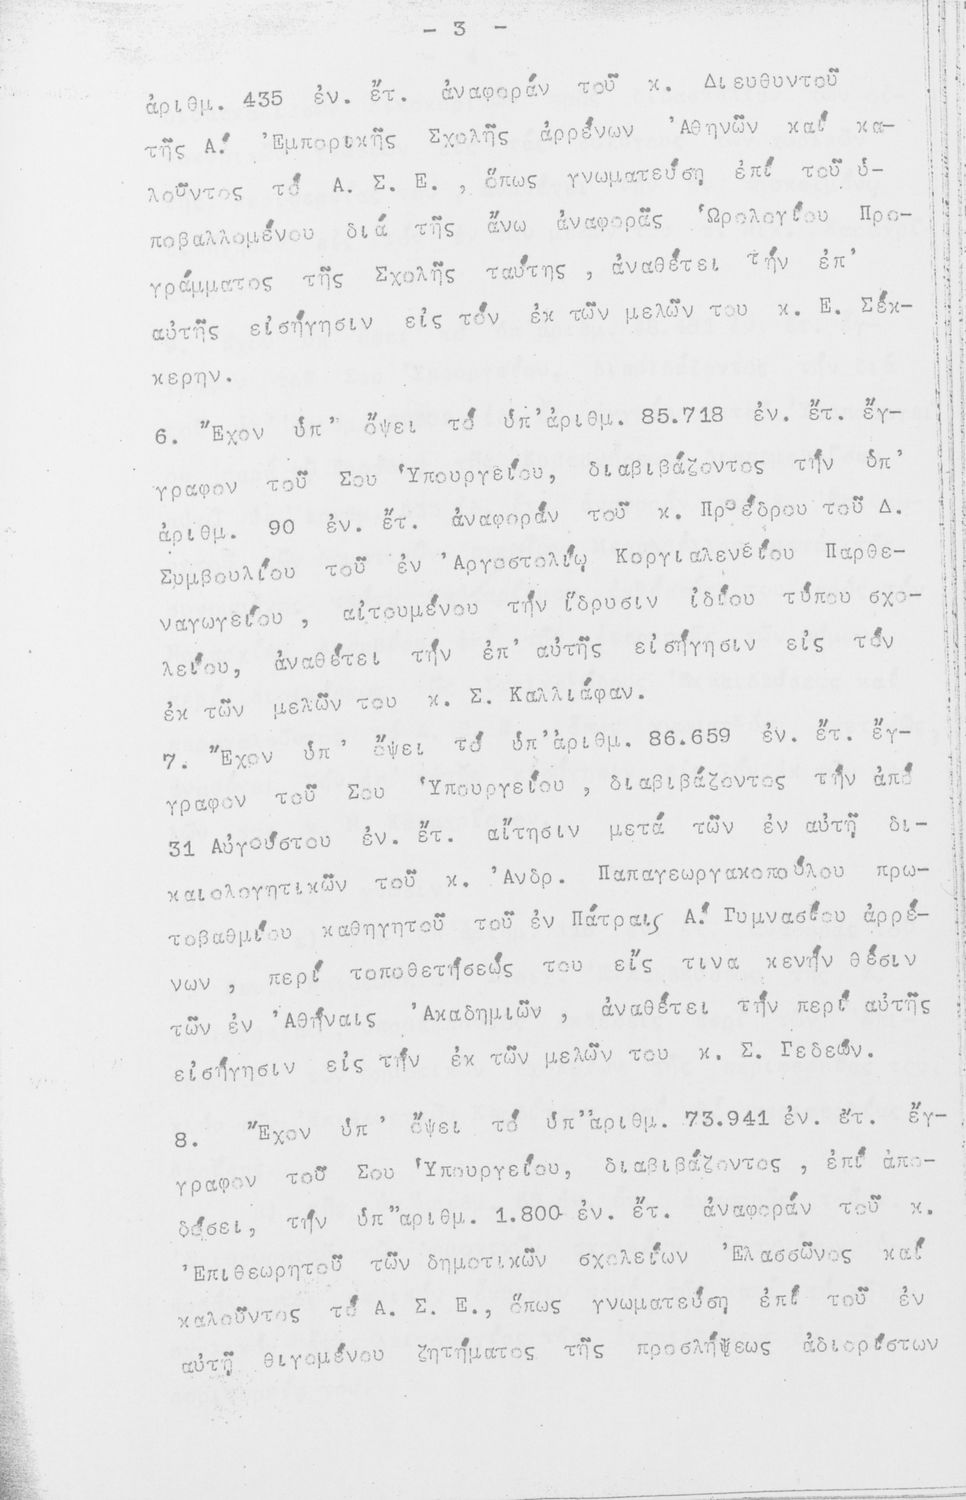 - 3 -
ἀριθμ. 435 ἐν. ἔτ. ἀναφοράν τοῦ κ. Διευθυντοῦ
τῆς Α! Ἐμπορικῆς Σχολῆς ἀρρένων Ἀθηνῶν καί κα-
λοῦντος τό Α. Σ. Ε. , ὅπως γνωματεύσῃ ἐπί τοῦ ὑ-
ποβαλλομένου διά τῆς ἄνω ἀναφορᾶς Ὡρολογίου Προ-
γράμματος τῆς Σχολῆς ταύτης , ἀναθέτει τήν ἐπ'
αὐτῆς εἰσήγησιν εἰς τόν ἐκ τῶν μελῶν του κ. Ε. Σέκ-
κερην.
6. Ἔχον ὑπ' ὄψει τό ὑπ'ἀριθμ. 85.718 ἐν. ἔτ. ἔγ-
γραφον τοῦ Σου Ὑπουργείου, διαβιβάζοντος τήν ὑπ'
ἀριθμ. 90 ἐν. ἔτ. ἀναφοράν τοῦ κ. Προέδρου τοῦ Δ.
Συμβουλίου τοῦ ἐν Ἀργοστολίῳ Κοργιαλενείου Παρθε-
ναγωγείου , αἰτουμένου τήν ἵδρυσιν ἰδίου τύπου σχο-
λείου, ἀναθέτει τήν ἐπ' αὐτῆς εἰσήγησιν εἰς τόν
ἐκ τῶν μελῶν του κ. Σ. Καλλιάφαν.
7. Ἔχον ὑπ' ὄψει τό ὑπ'ἀριθμ. 86.659 ἐν. ἔτ. ἔγ-
γραφον τοῦ Σου Ὑπουργείου , διαβιβάζοντος τήν ἀπό
31 Αὐγούστου ἐν. ἔτ. αἴτησιν μετά τῶν ἐν αὐτῇ δι-
καιολογητικῶν τοῦ κ. Ἀνδρ. Παπαγεωργακοπούλου πρω-
τοβαθμίου καθηγητοῦ τοῦ ἐν Πάτραις Α! Γυμνασίου ἀρρέ-
νων , περί τοποθετήσεώς του εἴς τινα κενήν θέσιν
τῶν ἐν Ἀθήναις Ἀκαδημιῶν , ἀναθέτει τήν περί αὐτῆς
εἰσήγησιν εἰς τήν ἐκ τῶν μελῶν του κ. Σ. Γεδεών.
8. Ἔχον ὑπ' ὄψει τό ὑπ'ἀριθμ. 73.941 ἐν. ἔτ. ἔγ-
γραφον τοῦ Σου Ὑπουργείου, διαβιβάζοντος , ἐπί ἀπο-
δόσει, τήν ὑπ'ἀριθμ. 1.800 ἐν. ἔτ. ἀναφοράν τοῦ κ.
Ἐπιθεωρητοῦ τῶν δημοτικῶν σχολείων Ἐλασσῶνος καί
καλοῦντος τό Α. Σ. Ε., ὅπως γνωματεύσῃ ἐπί τοῦ ἐν
αὐτῇ θιγομένου ζητήματος τῆς προσλήψεως ἀδιορίστων